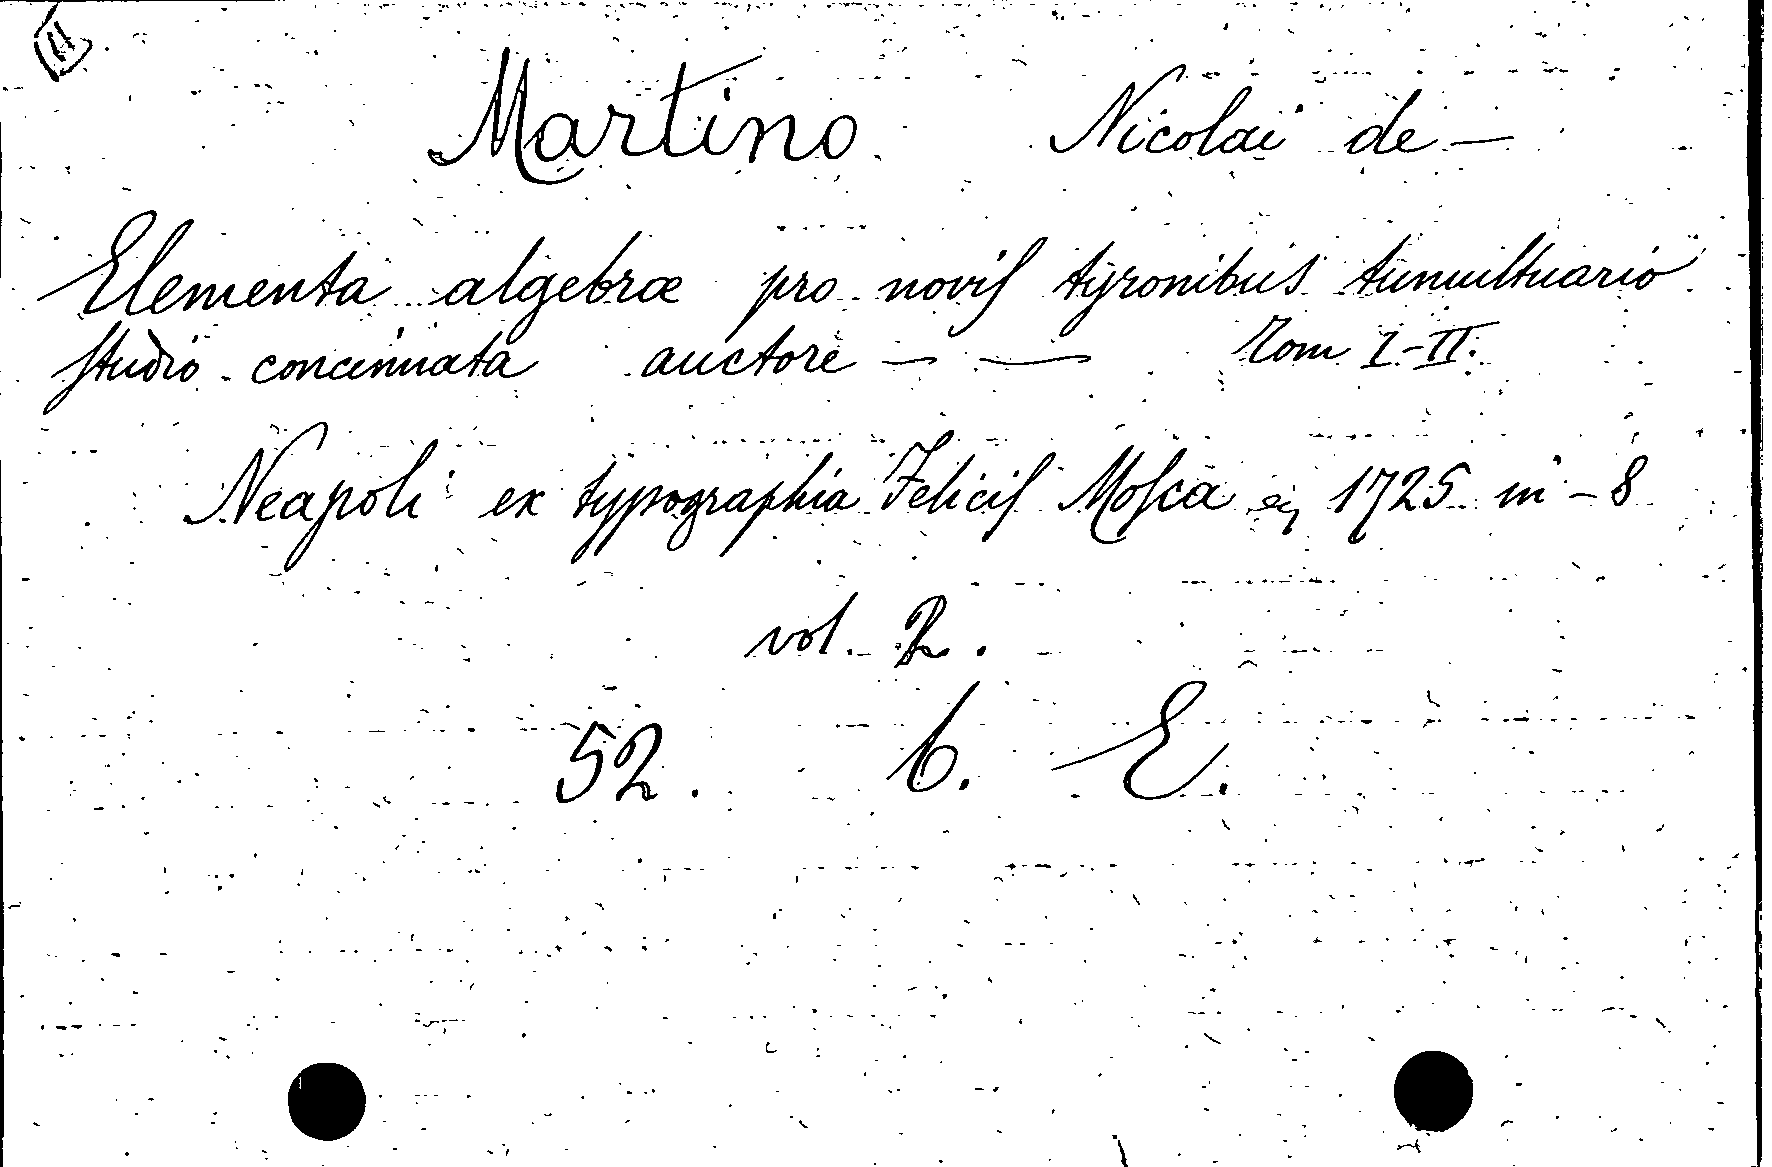 Martino Nicolai de —
Elementa algebræ pro novis tyronibus tumultuario
studio concinnata auctore — — Tom I-II.
Neapoli ex typographia Felicis Mosca 1725 in - 8
vol. 2.
52. b. E.